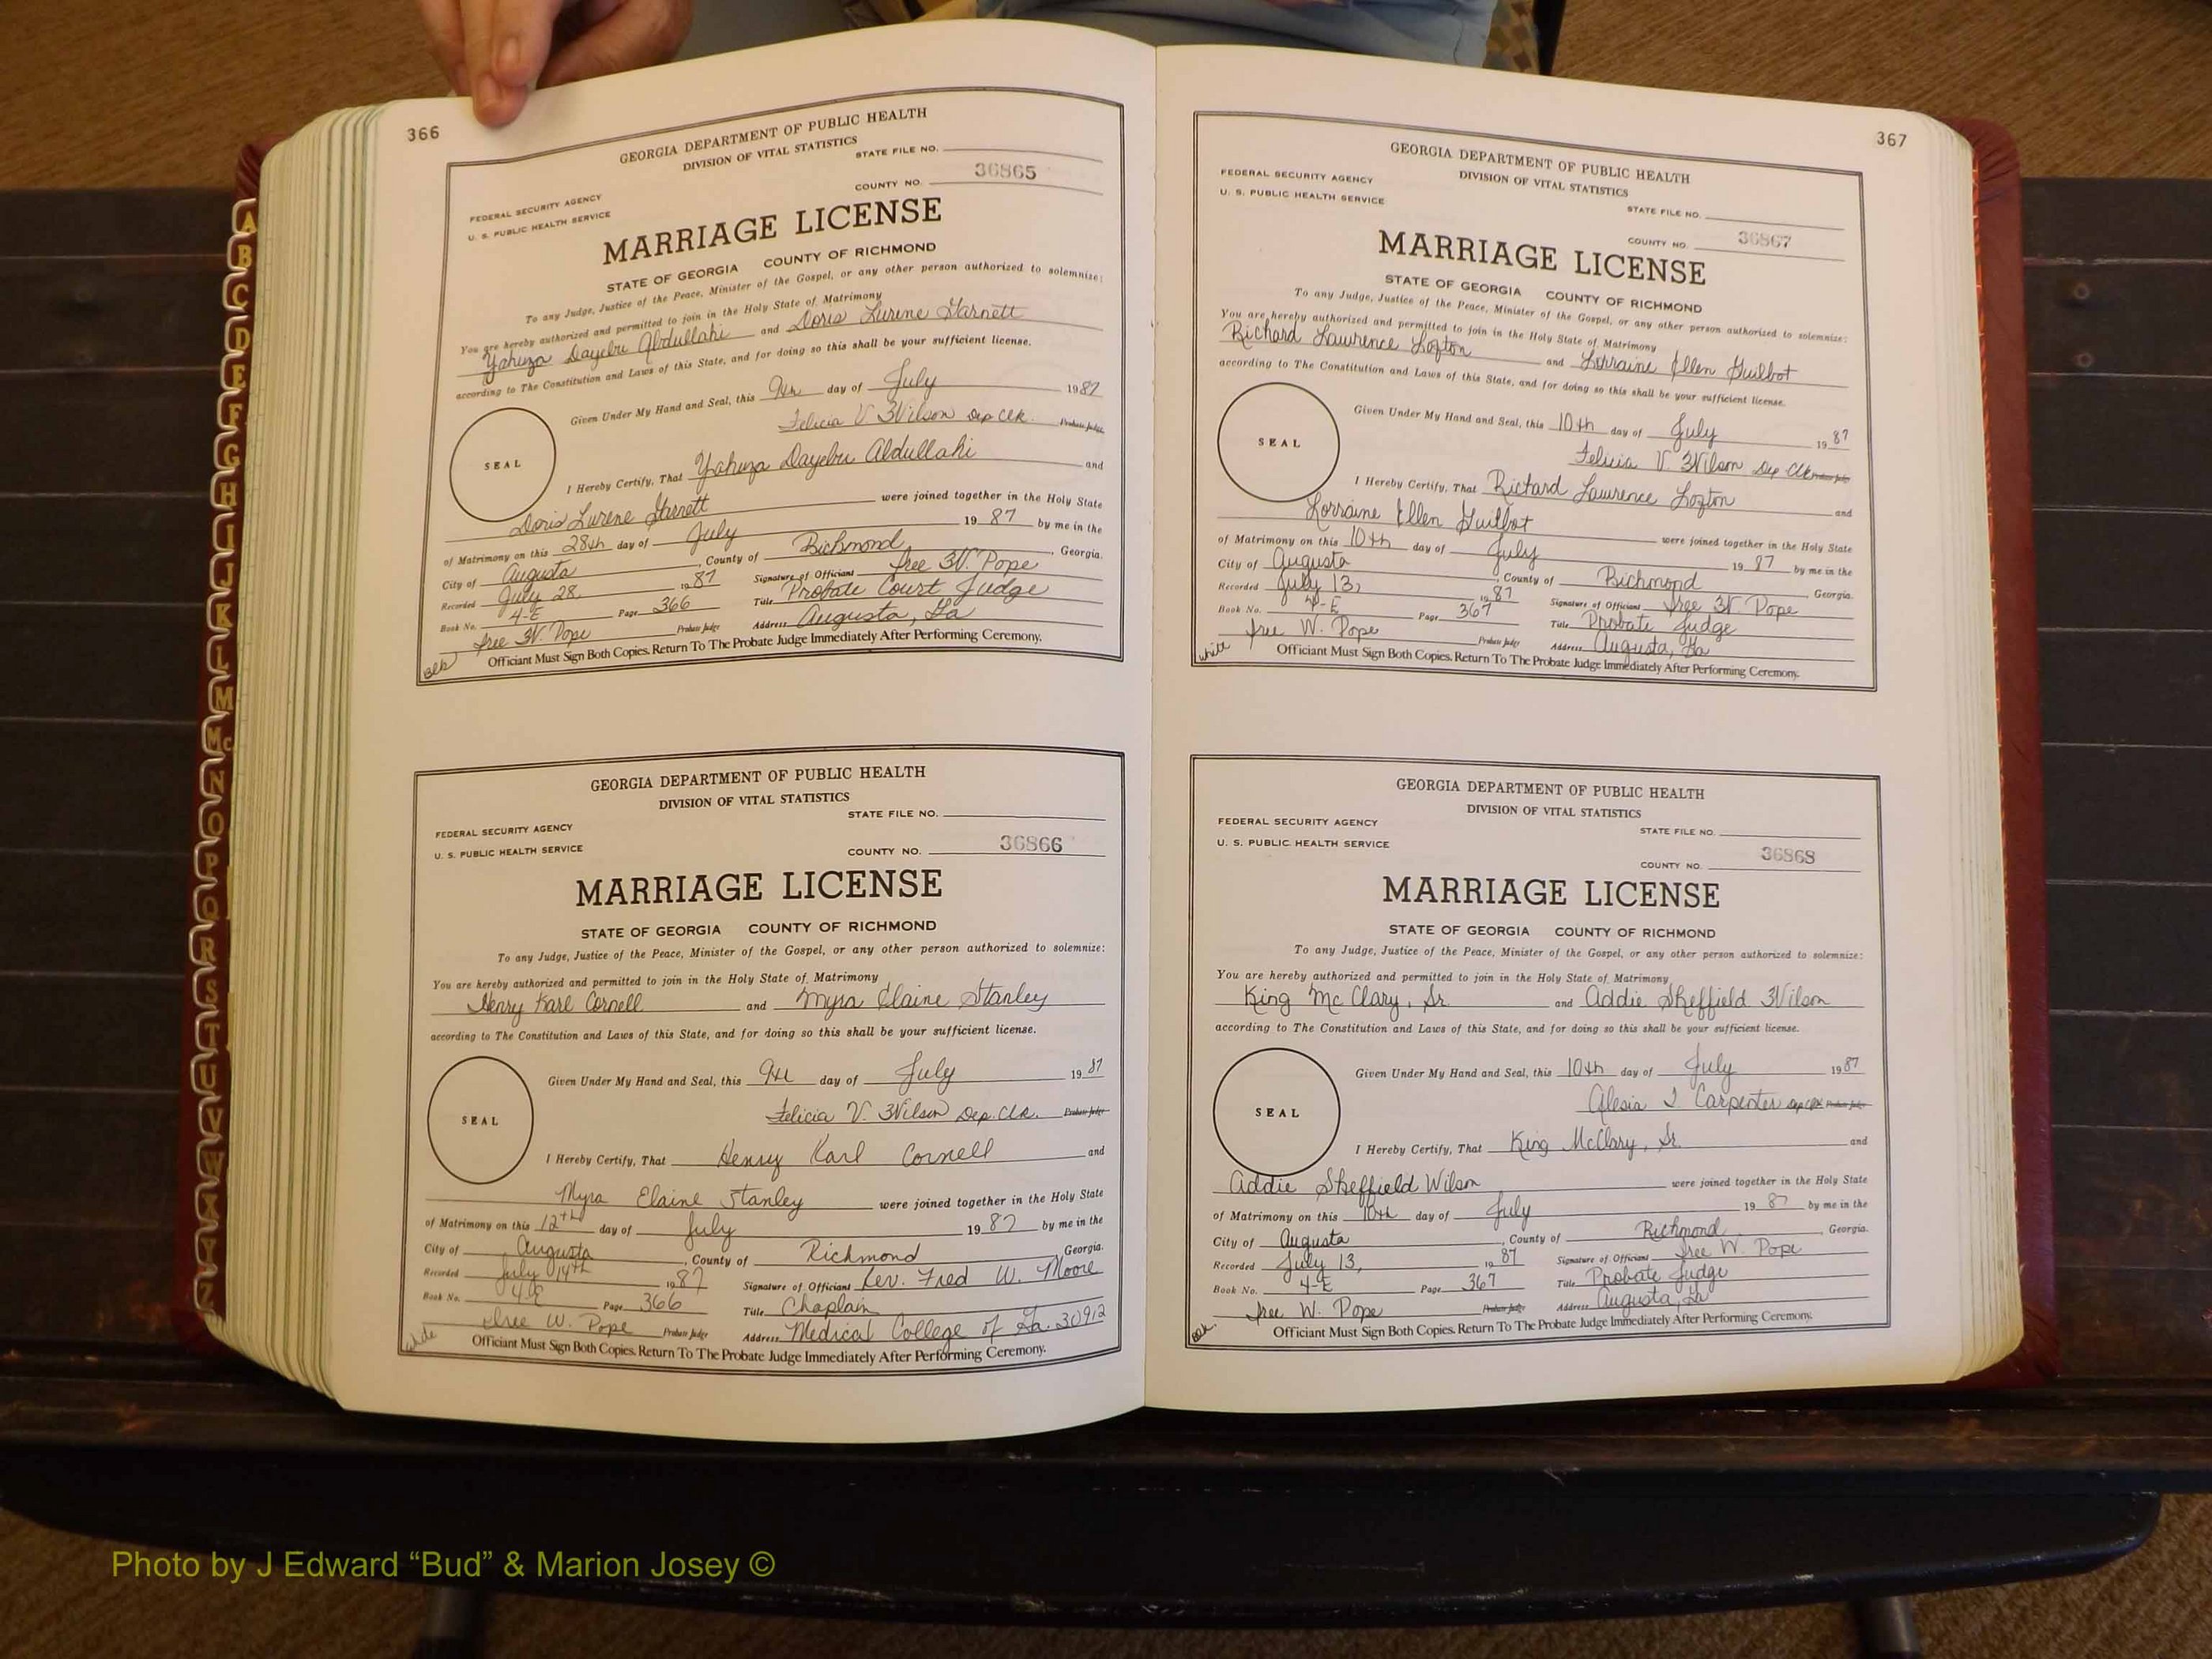 366
GEORGIA DEPARTMENT OF PUBLIC HEALTH
DIVISION OF VITAL STATISTICS
STATE FILE NO.
FEDERAL SECURITY AGENCY
U. S. PUBLIC HEALTH SERVICE
COUNTY NO. 36865
MARRIAGE LICENSE
STATE OF GEORGIA COUNTY OF RICHMOND
To any Judge, Justice of the Peace, Minister of the Gospel, or any other person authorized to solemnize:
You are hereby authorized and permitted to join in the Holy State of Matrimony
Yahuza Dayebu Abdullahi and Doris Lurene Garnett
according to The Constitution and Laws of this State, and for doing so this shall be your sufficient license.
Given Under My Hand and Seal, this 9th day of July 1987
Felicia V. Wilson Dep Clk. Probate Judge
SEAL
I Hereby Certify, That Yahuza Dayebu Abdullahi and
Doris Lurene Garnett were joined together in the Holy State
of Matrimony on this 28th day of July 1987 by me in the
City of Augusta, County of Richmond, Georgia.
Recorded July 28, 1987 Signature of Officiant W. Pope
Book No. 4-E Page 366 Title Probate Court Judge
W. Pope Probate Judge Address Augusta, Ga
Officiant Must Sign Both Copies. Return To The Probate Judge Immediately After Performing Ceremony.
GEORGIA DEPARTMENT OF PUBLIC HEALTH
DIVISION OF VITAL STATISTICS
STATE FILE NO.
FEDERAL SECURITY AGENCY
U. S. PUBLIC HEALTH SERVICE
COUNTY NO. 36866
MARRIAGE LICENSE
STATE OF GEORGIA COUNTY OF RICHMOND
To any Judge, Justice of the Peace, Minister of the Gospel, or any other person authorized to solemnize:
You are hereby authorized and permitted to join in the Holy State of Matrimony
Henry Karl Cornell and Myra Elaine Stanley
according to The Constitution and Laws of this State, and for doing so this shall be your sufficient license.
Given Under My Hand and Seal, this 9th day of July 1987
Felicia V. Wilson Dep. Clk. Probate Judge
SEAL
I Hereby Certify, That Henry Karl Cornell and
Myra Elaine Stanley were joined together in the Holy State
of Matrimony on this 12th day of July 1987 by me in the
City of Augusta, County of Richmond Georgia.
Recorded July 14th 1987 Signature of Officiant Rev. Fred W. Moore
Book No. 4-E Page 366 Title Chaplain
W. Pope Probate Judge Address Medical College of Ga. 30912
white
Officiant Must Sign Both Copies. Return To The Probate Judge Immediately After Performing Ceremony.
367
GEORGIA DEPARTMENT OF PUBLIC HEALTH
DIVISION OF VITAL STATISTICS
FEDERAL SECURITY AGENCY
U. S. PUBLIC HEALTH SERVICE
STATE FILE NO.
COUNTY NO. 36867
MARRIAGE LICENSE
STATE OF GEORGIA COUNTY OF RICHMOND
To any Judge, Justice of the Peace, Minister of the Gospel, or any other person authorized to solemnize:
You are hereby authorized and permitted to join in the Holy State of Matrimony
Richard Lawrence Lofton and Lorraine Ellen Guilbot
according to The Constitution and Laws of this State, and for doing so this shall be your sufficient license.
Given Under My Hand and Seal, this 10th day of July 1987
Felicia V. Wilson Dep Clk Probate Judge
SEAL
I Hereby Certify, That Richard Lawrence Lofton and
Lorraine Ellen Guilbot were joined together in the Holy State
of Matrimony on this 10th day of July 1987 by me in the
City of Augusta, County of Richmond Georgia.
Recorded July 13, 1987 Signature of Officiant W. Pope
Book No. 4-E Page 367 Title Probate Judge
W. Pope Probate Judge Address Augusta, Ga
white
Officiant Must Sign Both Copies. Return To The Probate Judge Immediately After Performing Ceremony.
GEORGIA DEPARTMENT OF PUBLIC HEALTH
DIVISION OF VITAL STATISTICS
FEDERAL SECURITY AGENCY
STATE FILE NO.
U. S. PUBLIC HEALTH SERVICE
COUNTY NO. 36868
MARRIAGE LICENSE
STATE OF GEORGIA COUNTY OF RICHMOND
To any Judge, Justice of the Peace, Minister of the Gospel, or any other person authorized to solemnize:
You are hereby authorized and permitted to join in the Holy State of Matrimony
King Mc Clary, Sr. and Addie Sheffield Wilson
according to The Constitution and Laws of this State, and for doing so this shall be your sufficient license.
Given Under My Hand and Seal, this 10th day of July 1987
Alesia J Carpenter Dep Clk Probate Judge
SEAL
I Hereby Certify, That King McClary, Sr. and
Addie Sheffield Wilson were joined together in the Holy State
of Matrimony on this 10th day of July 1987 by me in the
City of Augusta, County of Richmond, Georgia.
Recorded July 13, 1987 Signature of Officiant W. Pope
Book No. 4-E Page 367 Title Probate Judge
W. Pope Probate Judge Address Augusta, Ga
Officiant Must Sign Both Copies. Return To The Probate Judge Immediately After Performing Ceremony.
A
B
C
D
E
F
G
H
I
J
K
L
M
Mc
N
O
P
Q
R
S
T
U
V
W
X
Y
Z
Photo by J Edward “Bud” & Marion Josey ©